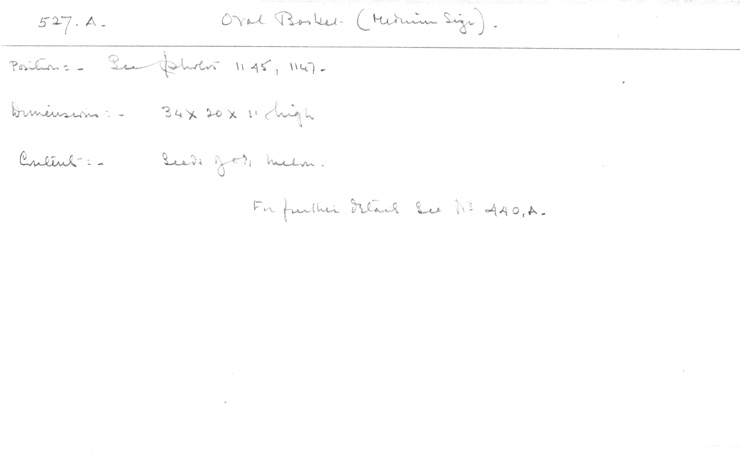 527. A. Oval Basket (Medium Size).
Position:- See photos 1145, 1147.
Dimensions:- 34 x 20 x 11 high
Content:- Seeds of melon.
For further details see No 440, A.